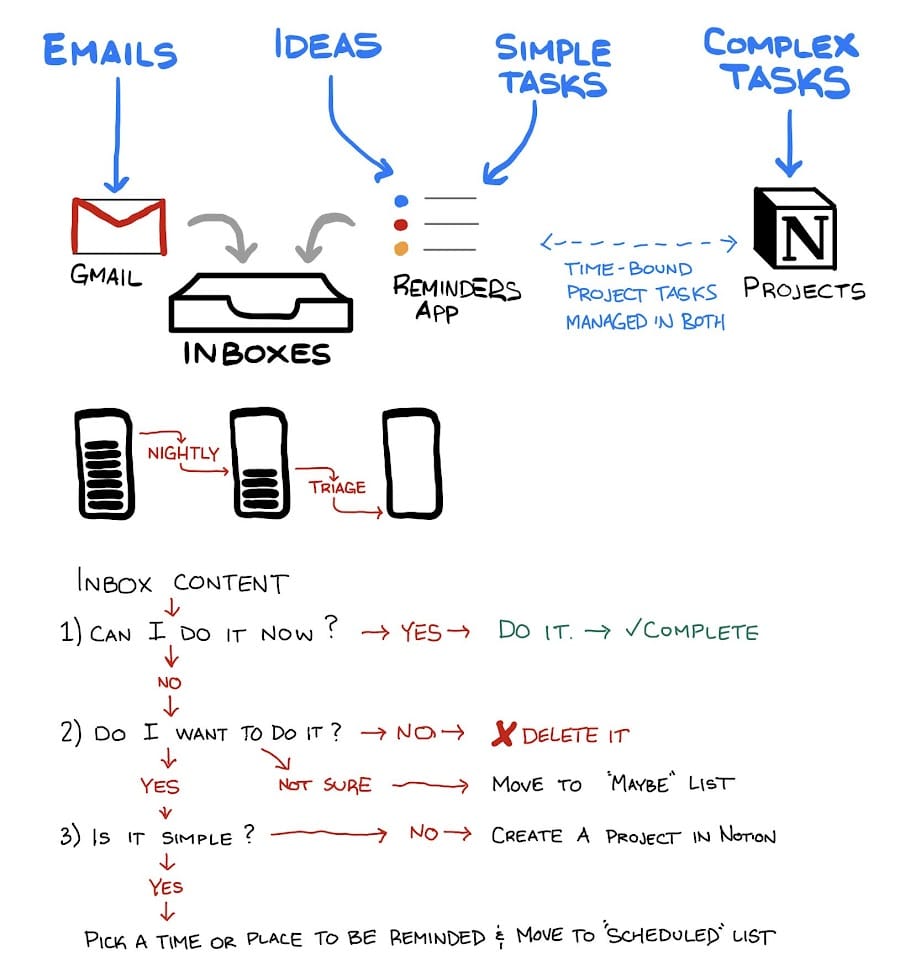 EMAILS
IDEAS
SIMPLE
TASKS
COMPLEX
TASKS
GMAIL
INBOXES
REMINDERS
APP
TIME-BOUND
PROJECT TASKS
MANAGED IN BOTH
N
PROJECTS
NIGHTLY
TRIAGE
INBOX CONTENT
1) CAN I DO IT NOW? → YES → DO IT. → ✓COMPLETE
NO
2) DO I WANT TO DO IT? → NO → ✗ DELETE IT
YES NOT SURE → MOVE TO "MAYBE" LIST
3) IS IT SIMPLE? → NO → CREATE A PROJECT IN NOTION
YES
PICK A TIME OR PLACE TO BE REMINDED & MOVE TO "SCHEDULED" LIST